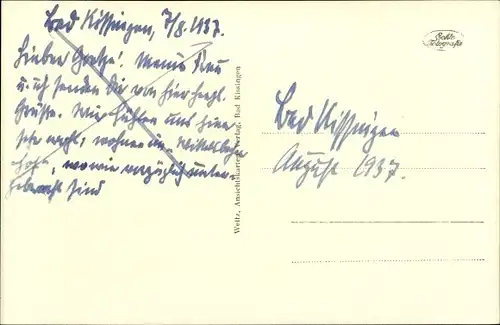 Bad Kissingen, 7/8. 1937.
Lieber Goetze! Meine Frau
u. ich senden Dir von hier herzl.
Grüsse. Wir fühlen uns hier
sehr wohl, wohnen im "Wittelsbacher
Hof", wo wir vorzüglich unter-
gebracht sind
Echte
Fotografie
Weitz, Ansichtskarten-Verlag, Bad Kissingen
Bad Kissingen
August 1937.